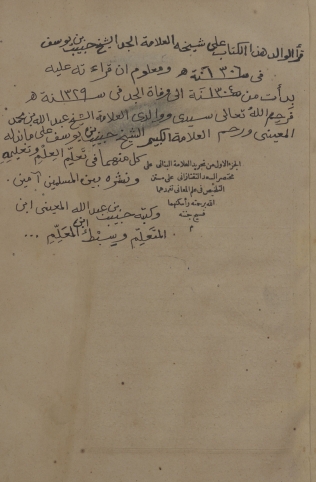 قرأ الوالد هذا الكتاب على شيخه العلامة الجد الشيخ حبيب بن يوسف
في سنة ١٣٠٦ هـ ومعلوم ان قراءته عليه
بدأت من سنة ١٣٠٤ الى وفاة الجد في سنة ١٣٢٩ هـ
فرحم الله تعالى سيدي ووالدي العلامة الشيخ عبدالله بن محمد
المعيني ورحم العلامة الكبير الشيخ حبيب بن يوسف على ما بذله
كل منهما في تعلم العلم وتعليمه
ونشره بين المسلمين آمين.
الجزء الاول من تجريد العلامة البناني على
مختصر السعد التفتازاني على متن
التلخيص في علم المعاني
وكتبه حبيب بن عبدالله المعيني ابن
المتعلم وسبط المعلم ...